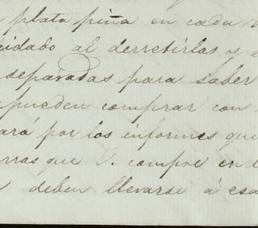 plata piña en cada
cuidado al derretirlas y
separadas para saber
pueden comprar con
ará por los informes que
rras que V. compre en
deben llevarse á esa